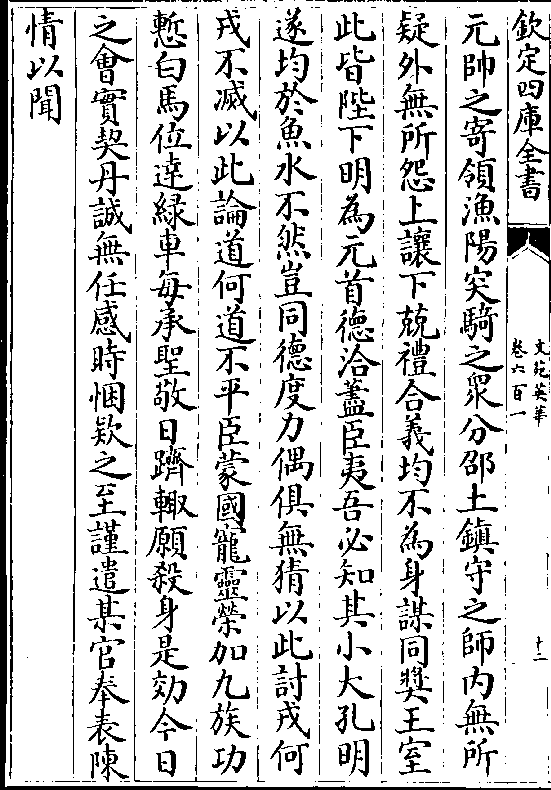 欽定四庫全書
文苑英華
卷六百一
十二
元帥之寄領漁陽突騎之衆分邵土鎮守之師内無所
疑外無所怨上讓下兢禮合義均不為身謀同奬王室
此皆陛下明為元首德洽蓋臣夷吾必知其小大孔明
遂均於魚水不然豈同德度力偶俱無猜以此討戎何
戎不滅以此論道何道不平臣蒙國寵靈榮加九族功
慙白馬位達緑車每承聖敬日躋輙願殺身是効今日
之會實契丹誠無任感時悃欵之至謹遣某官奉表陳
情以聞